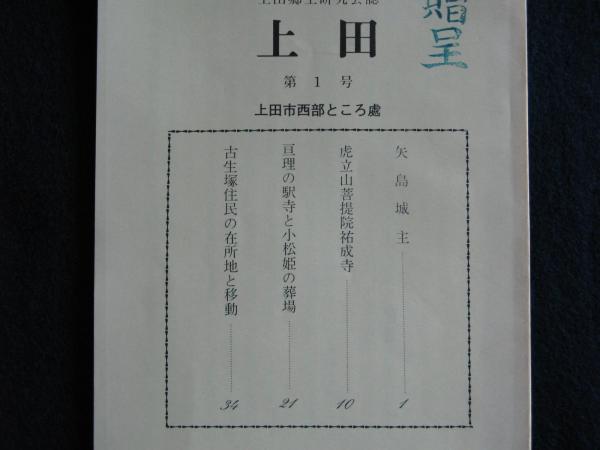 上田郷土研究会誌
贈呈
上田
第1号
上田市西部ところ處
矢島城主 1
虎立山菩提院祐成寺 10
亘理の駅寺と小松姫の葬場 21
古生塚住民の在所地と移動 34